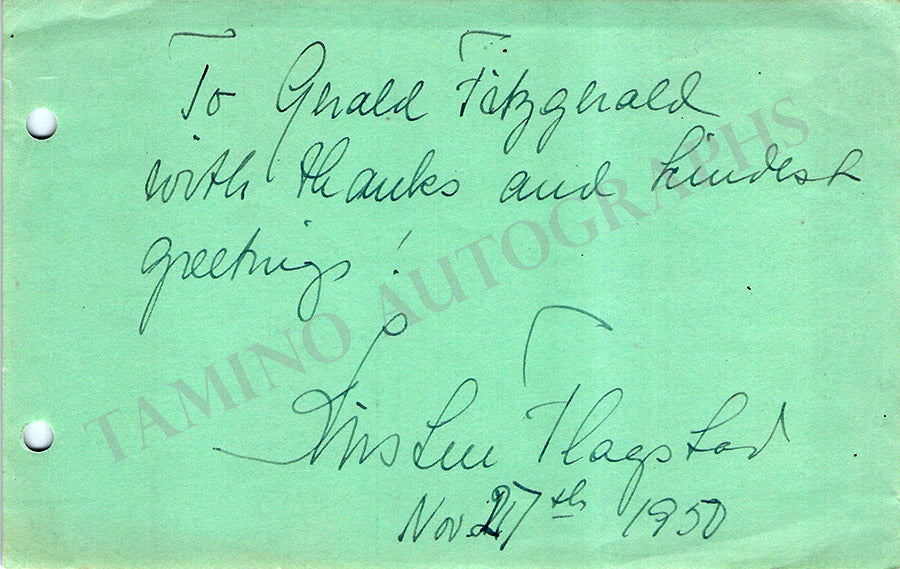 To Gerald Fitzgerald
with thanks and kindest
greetings!
Kirsten Flagstad
Nov. 27th 1950
TAMINO AUTOGRAPHS